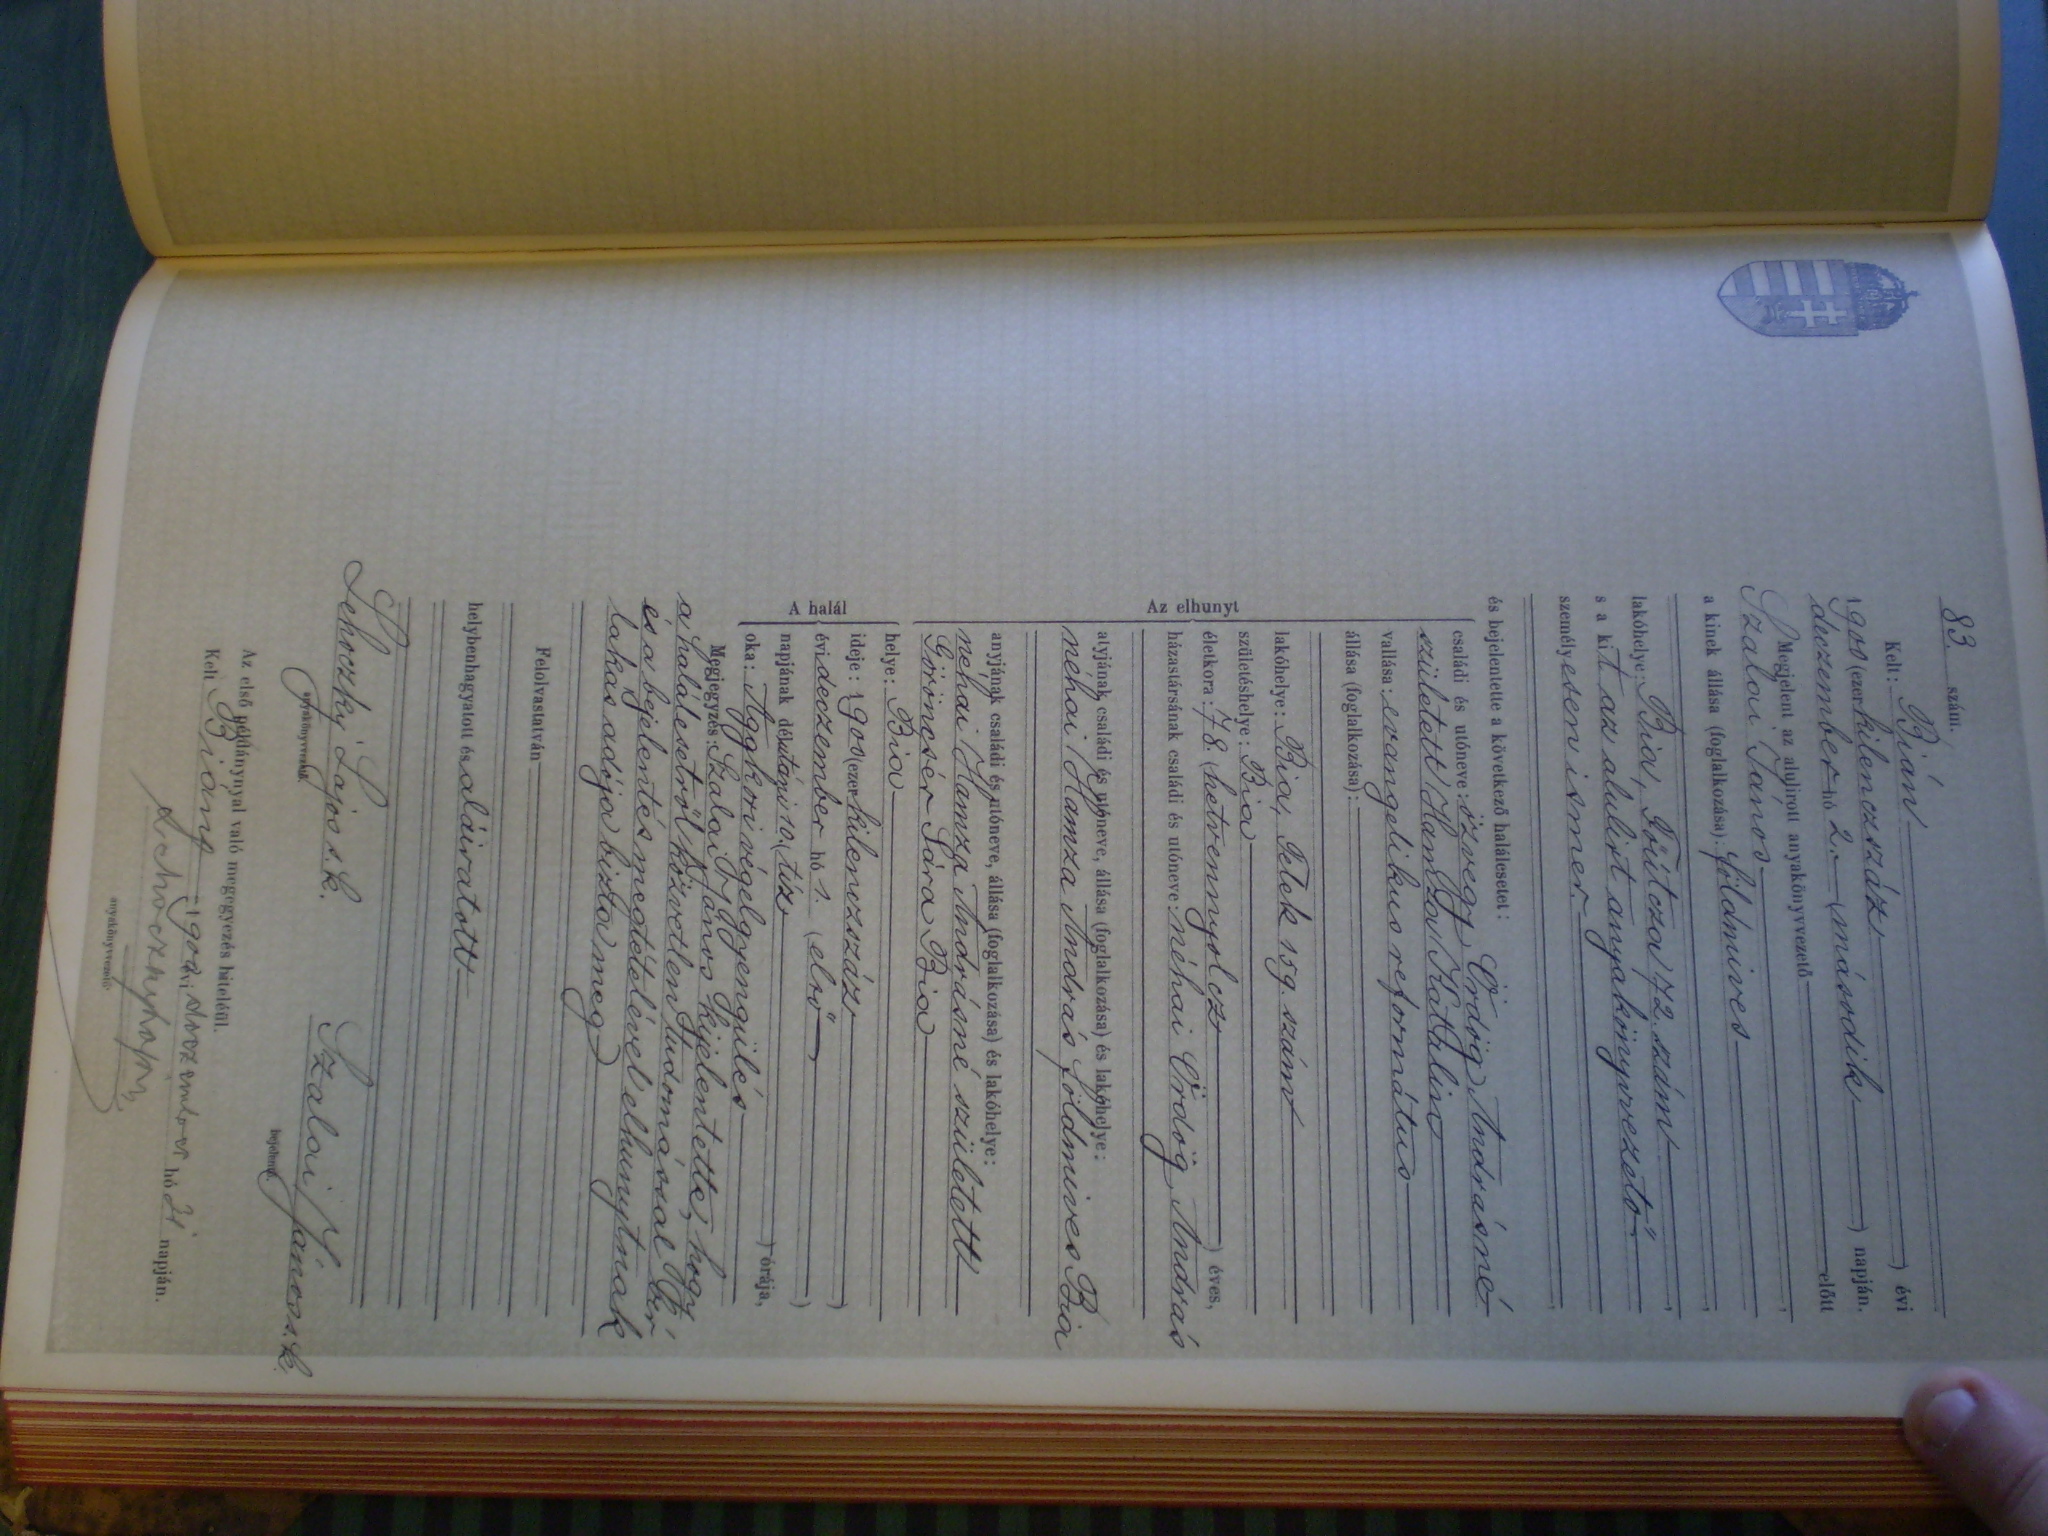 83. szám.
Kelt: Bián ) évi
1900 (ezer kilenczszáz
deczember hó 2. (második ) napján.
Megjelent az alulirott anyakönyvvezető előtt
Szalai János
a kinek állása (foglalkozása): földmives
lakóhelye: Bia, 172. szám
s a kit az alulirt anyakönyvvezető
személyesen ismer.
és bejelentette a következő halálesetet:
Az elhunyt
családi és utóneve: özvegy Ördög Andrásné
született Hamza Katalin
vallása: evangelikus református
állása (foglalkozása):
lakóhelye: Bia, Telek 159. szám
születéshelye: Bia
életkora: 78. (hetvennyolcz ) éves,
házastársának családi és utóneve: néhai Ördög András
atyjának családi és utóneve, állása (foglalkozása) és lakóhelye:
néhai Hamza András földmives Bia
anyjának családi és utóneve, állása (foglalkozása) és lakóhelye:
néhai Hamza Andrásné született
Göröncsér Sára Bia
A halál
helye: Bia
ideje: 1900 (ezer kilenczszáz )
évi deczember hó 1. (első )
napjának délutáni 10. (tíz ) órája,
oka: Aggkori végelgyengülés
Megjegyzés: Szalai János kijelentette, hogy
a halálesetről közvetlen tudomással bir
és a bejelentés megtételével elhunytnak
lakásadója bizta meg
Felolvastatván
helybenhagyatott és aláiratott
Lehoczky Lajos s.k. Szalai János s.k.
anyakönyvvezető. bejelentő.
Az első példánynyal való megegyezés hiteléül.
Kelt Bián, 1900 évi deczember hó 31 napján.
Lehoczky Lajos
anyakönyvvezető